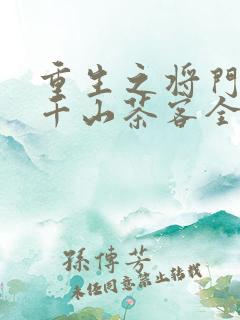 重生之将門
千山茶客全
孫傳芳
未经同意禁止转载